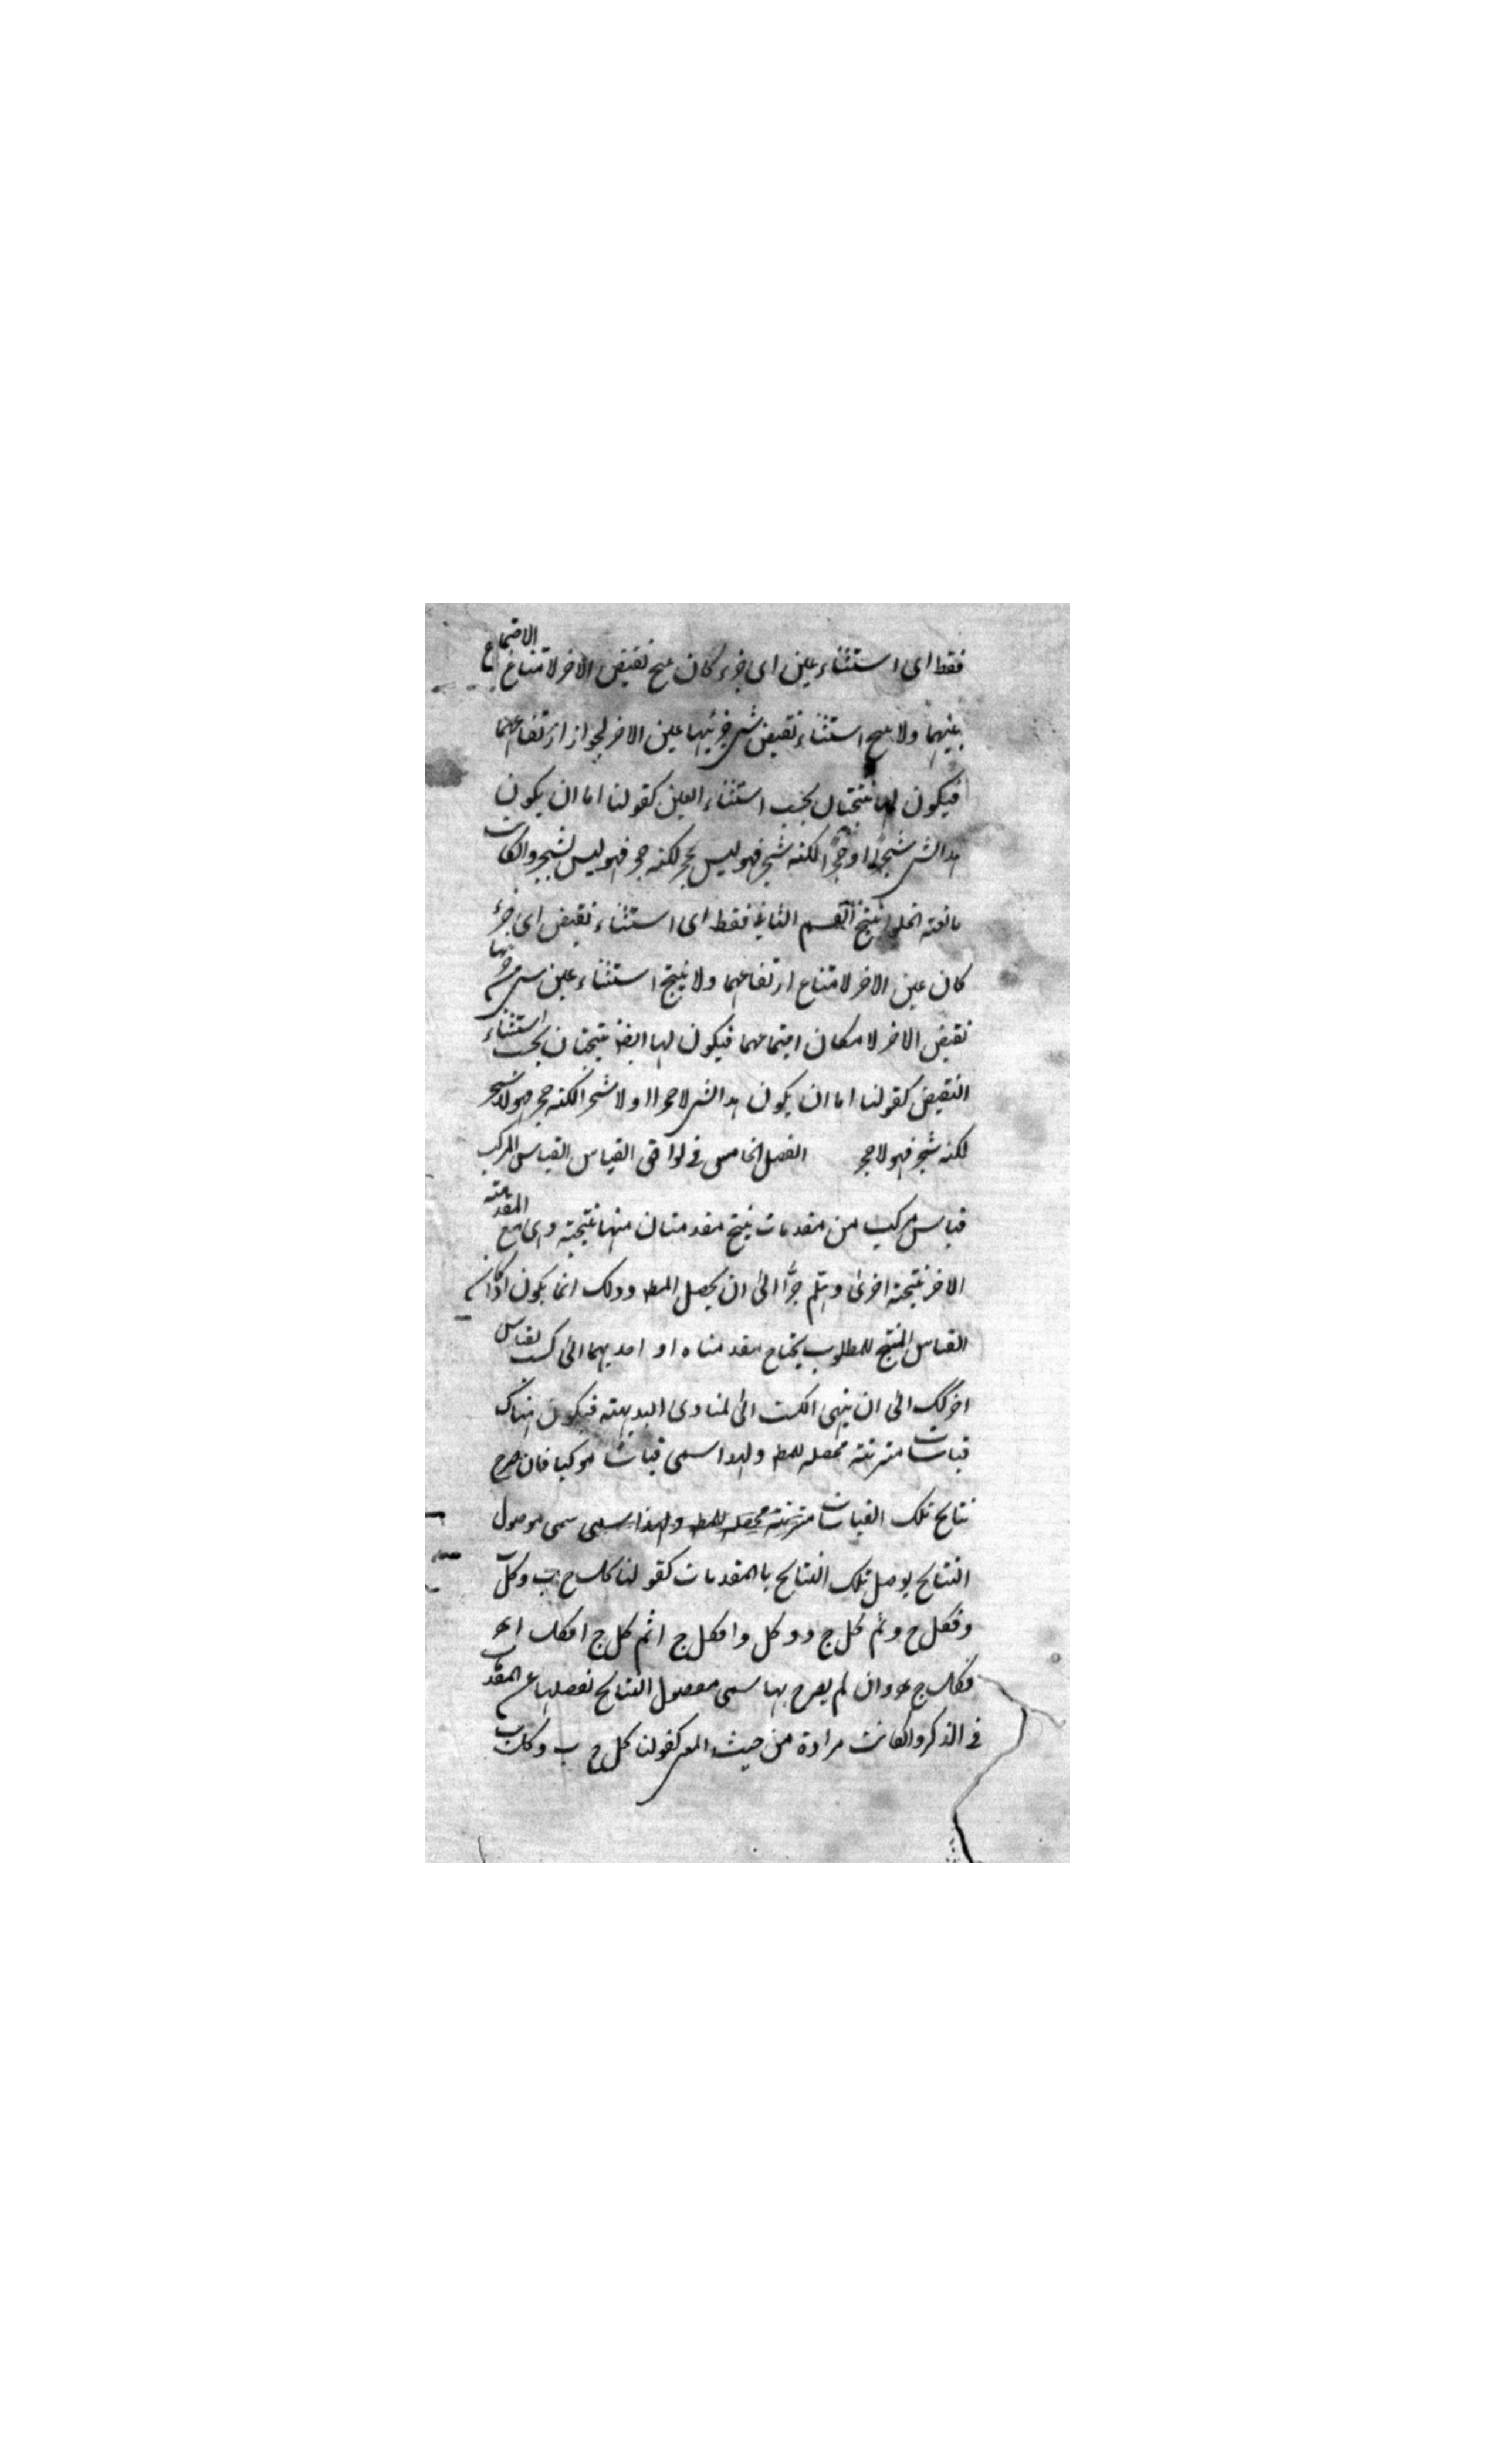 فقط اى استثناء عين اى جزء كان ينتج نقيض الاخر لامتناع الاجتماع
بينهما ولا ينتج استثناء نقيض شى جزئيها عين الاخر لجواز ارتفاعهما
فيكون لها نتيجتان بحسب استثناء العين كقولنا اما ان يكون
هذا الشى شجرا او حجرا لكنه شجر فهو ليس بحجر لكنه حجر فهو ليس بشجر وان كانت
مانعة الخلو ينتج القسم الثانى فقط اى استثناء نقيض اى جزء
كان عين الاخر لامتناع ارتفاعهما ولا ينتج استثناء عين شى من جزئيها
نقيض الاخر لامكان اجتماعهما فيكون لها ايضا نتيجتان بحسب استثناء
النقيض كقولنا اما ان يكون هذا الشى لاحجرا اولا شجرا لكنه حجر فهو لا شجر
لكنه شجر فهو لا حجر الفصل الخامس فى لواحق القياس القياس المركب
قياس مركب من مقدمات ينتج مقدمتان منها نتيجة وهى مع المقدمة
الاخر نتيجة اخرى وهلم جرا الى ان يحصل المط وذلك انما يكون اذا كان
القياس المنتج للمطلوب يحتاج مقدمتاه او احديهما الى كسب بقياس
اخر كك الى ان ينهى الكسب الى المبادى البديهية فيكون هناك
قياسات مترتبة محصله للمط ولهذا سمى قياسا مركبا فان صرح
نتايج تلك القياسات مترتبة محصله للمط ولهذا سمى سمى موصول
النتايج لوصل تلك النتايج بالمقدمات كقولنا كل ج ب وكل ب
د فكل ج د ثم كل ج د و كل د ا فكل ج ا ثم كل ج ا فكل ا ه
فكل ج ه وان لم يصرح بها سمى مفصول النتايج لفصلها عن المقدمات
فى الذكر وان كانت مرادة من حيث المعنى كقولنا كل ج ب وكل ب